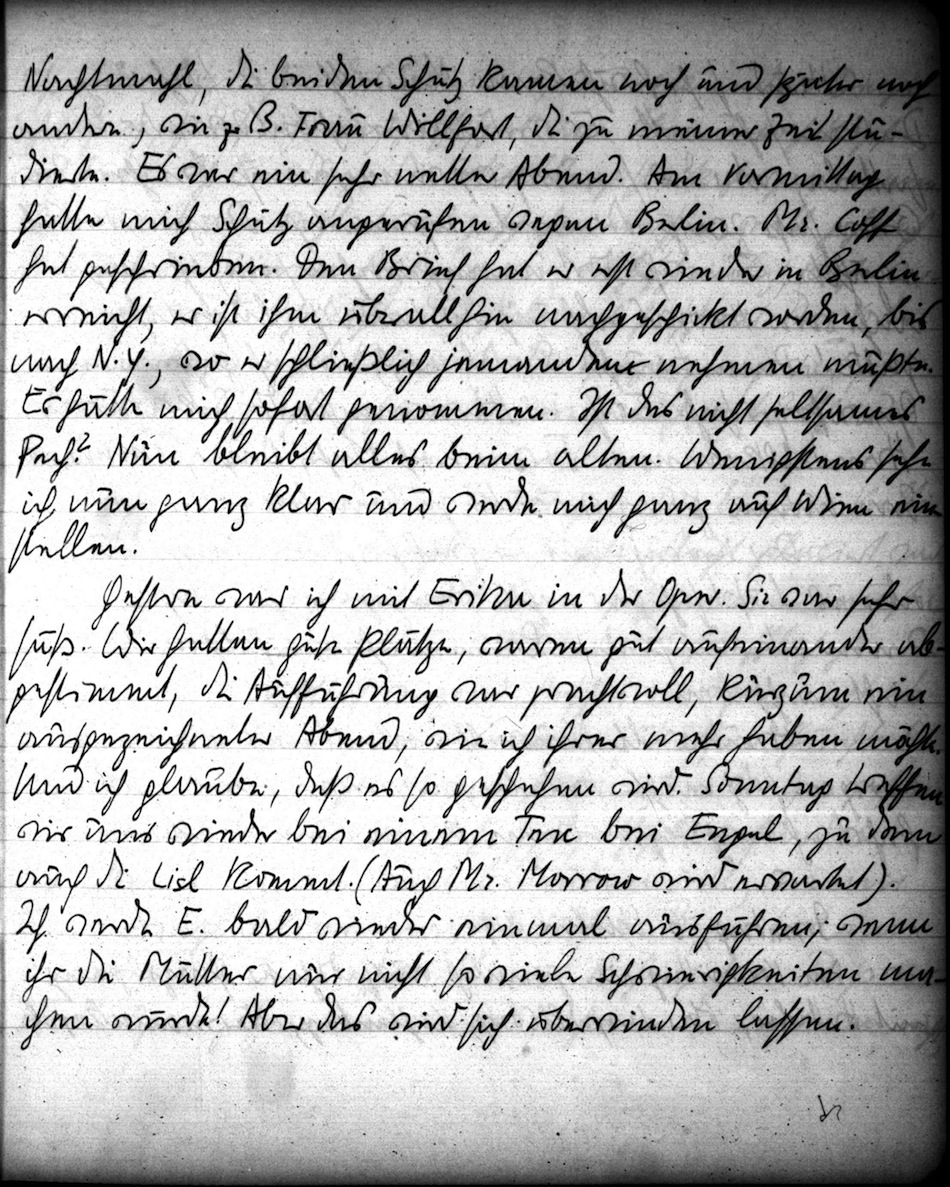 Nachtmahl, die beiden Schütz kamen noch und später noch
andere, wie z. B. Frau Willfort, die zu meiner Zeit stu-
dierte. Es war ein sehr netter Abend. Am Vormittag
hatte mich Schütz angerufen wegen Berlin. Mr. Goff
hat geschrieben. Den Brief hat er erst wieder in Berlin
erreicht, er ist ihm überallhin nachgeschickt worden, bis
nach N.Y., wo er schließlich jemanden nehmen mußte.
Er hätte mich sofort genommen. Ist das nicht seltsames
Pech? Nun bleibt alles beim alten. Wenigstens sehe
ich nun ganz klar und werde mich ganz auf Wien ein
stellen.
Gestern war ich mit Erika in der Oper. Sie war sehr
süß. Wir hatten gute Plätze, waren gut aufeinander ab-
gestimmt, die Aufführung war prachtvoll, kurzum ein
ausgezeichneter Abend, wie ich ihrer mehr haben möchte.
Und ich glaube, daß es so geschehen wird. Sonntag treffen
wir uns wieder bei einem Tee bei Engel, zu dem
auch die Lisl kommt. (Auch Mr. Morrow wird erwartet).
Ich werde E. bald wieder einmal ausführen; wenn
ihr die Mutter nur nicht so viele Schwierigkeiten ma-
chen würde! Aber das wird sich überwinden lassen.